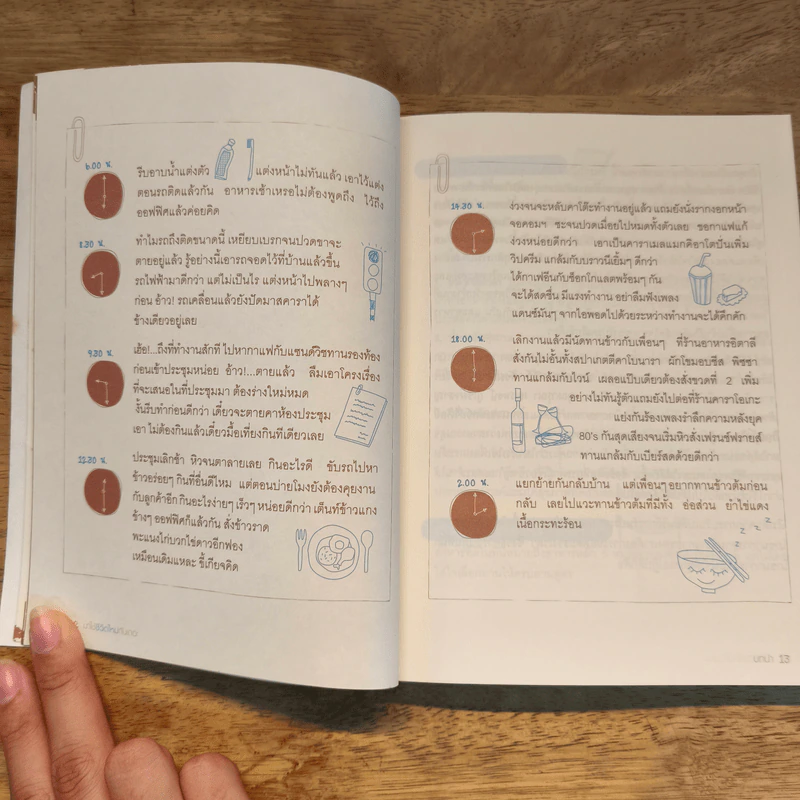 6.00 น.
รีบอาบน้ำแต่งตัว แต่งหน้าไม่ทันแล้ว เอาไว้แต่ง
ตอนรถติดแล้วกัน อาหารเช้าเหรอไม่ต้องพูดถึง ไว้ถึง
ออฟฟิศแล้วค่อยคิด
8.30 น.
ทำไมรถถึงติดขนาดนี้ เหยียบเบรกจนปวดขาจะ
ตายอยู่แล้ว รู้อย่างนี้เอารถจอดไว้ที่บ้านแล้วขึ้น
รถไฟฟ้ามาดีกว่า แต่ไม่เป็นไร แต่งหน้าไปพลางๆ
ก่อน อ้าว! รถเคลื่อนแล้วยังปัดมาสคาราได้
ข้างเดียวอยู่เลย
9.30 น.
เฮ้อ!...ถึงที่ทำงานสักที ไปหากาแฟกับแซนด์วิชทานรองท้อง
ก่อนเข้าประชุมหน่อย อ้าว!...ตายแล้ว ลืมเอาโครงเรื่อง
ที่จะเสนอในที่ประชุมมา ต้องร่างใหม่หมด
งั้นรีบทำก่อนดีกว่า เดี๋ยวจะตายคาห้องประชุม
เอา ไม่ต้องกินแล้วเดี๋ยวมื้อเที่ยงกินทีเดียวเลย
11.30 น.
ประชุมเลิกช้า หิวจนตาลายเลย กินอะไรดี ขับรถไปหา
ข้าวอร่อยๆ กินที่อื่นดีไหม แต่ตอนบ่ายโมงยังต้องคุยงาน
กับลูกค้าอีก กินอะไรง่ายๆ เร็วๆ หน่อยดีกว่า เต็นท์ข้าวแกง
ข้างๆ ออฟฟิศก็แล้วกัน สั่งข้าวราด
พะแนงไก่บวกไข่ดาวอีกฟอง
เหมือนเดิมแหละ ขี้เกียจคิด
14.30 น.
ง่วงจนจะหลับคาโต๊ะทำงานอยู่แล้ว แถมยังนั่งรากงอกหน้า
จอคอมฯ ซะจนปวดเมื่อยไปหมดทั้งตัวเลย ขอกาแฟแก้
ง่วงหน่อยดีกว่า เอาเป็นคาราเมลแมคคิอาโตปั่นเพิ่ม
วิปครีม แกล้มกับบราวนี่เยิ้มๆ ดีกว่า
ได้กาเฟอีนกับช็อกโกแลตพร้อมๆ กัน
จะได้สดชื่น มีแรงทำงาน อย่าลืมฟังเพลง
แดนซ์มันๆ จากไอพอดไปด้วยระหว่างทำงานจะได้คึกคัก
18.00 น.
เลิกงานแล้วมีนัดทานข้าวกับเพื่อนๆ ที่ร้านอาหารอิตาลี
สั่งกันไม่อั้นทั้งสปาเกตตีคาโบนารา ผักโขมอบชีส พิซซา
ทานแกล้มกับไวน์ เผลอแป๊บเดียวต้องสั่งขวดที่ 2 เพิ่ม
อย่างไม่ทันรู้ตัวแถมยังไปต่อที่ร้านคาราโอเกะ
แย่งกันร้องเพลงรำลึกความหลังยุค
80's กันสุดเสียงจนเริ่มหิวสั่งเฟรนช์ฟรายส์
ทานแกล้มกับเบียร์สดด้วยดีกว่า
2.00 น.
แยกย้ายกันกลับบ้าน แต่เพื่อนๆ อยากทานข้าวต้มก่อน
กลับ เลยไปแวะทานข้าวต้มที่มีทั้ง อ่อส่วน ยำไข่แดง
เนื้อกระทะร้อน
z z z
บทนำ 13